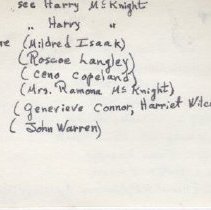 see Harry McKnight
" Harry "
re (Mildred Isaak)
(Roscoe Langley)
(Ceno Copeland)
(Mrs. Ramona McKnight)
(Genevieve Connor, Harriet Wilco
(John Warren)